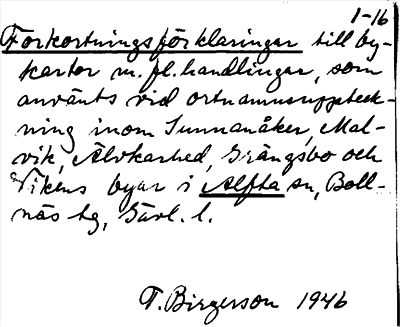 1-16
Förkortningsförklaringar till by-
kartor m. fl. handlingar, som
använts vid ortnamnsuppteck-
ning inom Sunnanåker, Mal-
vik, Älvkarhed, Grängsbo och
Vikens byar i Alfta sn, Boll-
näs tg, Gävl. l.
T. Birgerson 1946